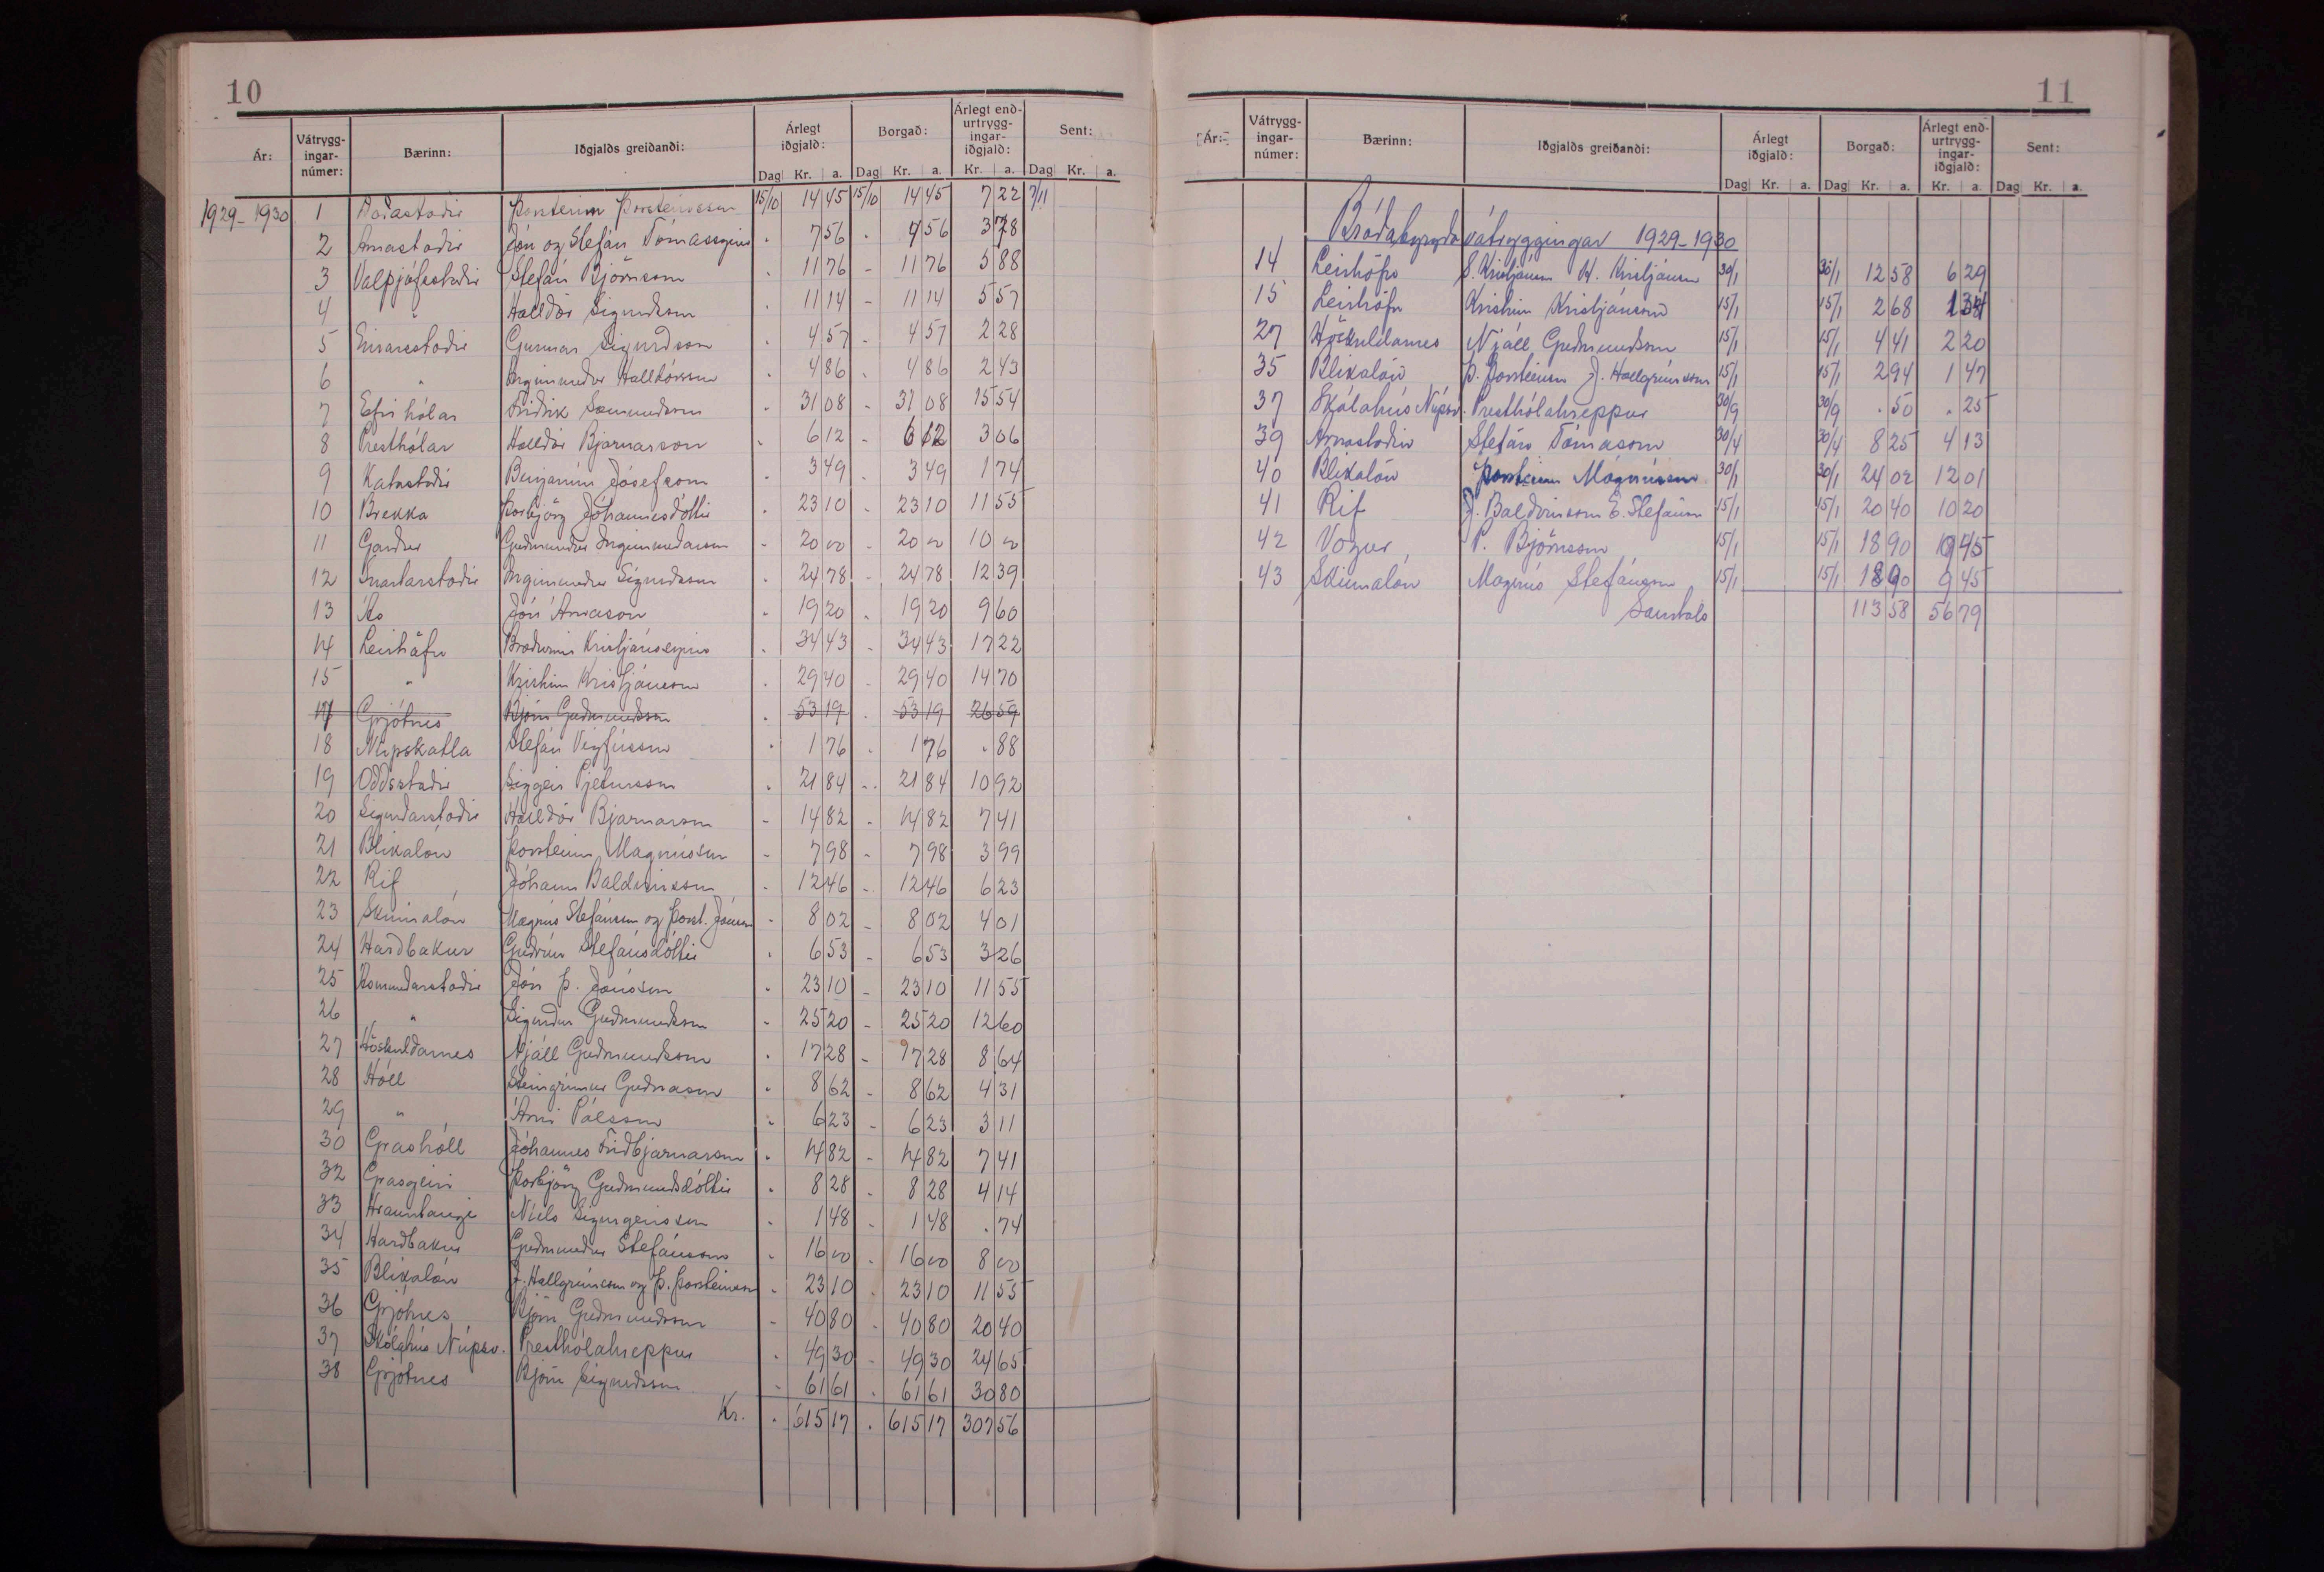 10
Ár: Vátrygg-ingar-númer: Bærinn: Iðgjalds greiðandi: Árlegt iðgjald: Borgað: Árlegt end-urtrygg-ingar-iðgjald: Sent:
Dag Kr. a. Dag Kr. a. Kr. a. Dag Kr. a.
1929-1930 1 Daðastaðir Þorsteinn Þorsteinsson 15/10 14 45 15/10 14 45 7 22 7/11
2 Arnastaðir Jón og Stefán Tómassynir " 7 56 " 7 56 3 78
3 Valþjófsstaðir Stefán Björnsson " 11 76 - 11 76 5 88
4 " Halldór Sigurdsson " 11 14 - 11 14 5 57
5 Einarsstaðir Gunnar Sigurdsson " 4 57 - 4 57 2 28
6 " Ingimundur Halldórsson " 4 86 " 4 86 2 43
7 Efri hólar Friðrik Sæmundsson " 31 08 - 31 08 15 54
8 Presthólar Halldór Bjarnarson " 6 12 - 6 12 3 06
9 Katastaðir Benjamín Jósefsson " 3 49 " 3 49 1 74
10 Brekka Þorbjörg Jóhannesdóttir " 23 10 - 23 10 11 55
11 Garður Guðmundur Ingimundarson " 20 00 - 20 00 10 00
12 Snartarstaðir Ingimundur Sigurdsson " 24 78 - 24 78 12 39
13 Ás Jón Árnason " 19 20 " 19 20 9 60
14 Leirhöfn Bræðurnir Kristjánssynir " 34 43 " 34 43 17 22
15 " Kristinn Kristjánsson " 29 40 - 29 40 14 70
17 Grjótnes Björn Guðmundsson " 53 19 " 53 19 26 59
18 Núpskatla Stefán Vigfússon " 1 76 " 1 76 " 88
19 Oddsstaðir Siggeir Pjetursson " 21 84 - 21 84 10 92
20 Sigurðarstaðir Halldór Bjarnarson - 14 82 - 14 82 7 41
21 Blikalón Þorsteinn Magnússon - 7 98 - 7 98 3 99
22 Rif Jóhann Baldvinsson " 12 46 - 12 46 6 23
23 Skinnalón Magnús Stefánsson og Þorst. Jónsson " 8 02 - 8 02 4 01
24 Harðbakur Guðrún Stefánsdóttir " 6 53 - 6 53 3 26
25 Ásmundarstaðir Jón Þ. Jónsson " 23 10 - 23 10 11 55
26 " Sigurður Guðmundsson " 25 20 - 25 20 12 60
27 Höskuldarnes Njáll Guðmundsson " 17 28 - 17 28 8 64
28 Hóll Steingrímur Guðnason " 8 62 - 8 62 4 31
29 " Árni Pálsson " 6 23 - 6 23 3 11
30 Grashóll Jóhannes Friðbjarnarson " 14 82 - 14 82 7 41
32 Grasgeiri Þorbjörg Guðmundsdóttir " 8 28 " 8 28 4 14
33 Hrauntangi Níels Sigurgeirsson " 1 48 - 1 48 " 74
34 Harðbakur Guðmundur Stefánsson " 16 00 " 16 00 8 00
35 Blikalón J. Hallgrímsson og Þ. Þorsteinsson " 23 10 " 23 10 11 55
36 Grjótnes Björn Guðmundsson - 40 80 " 40 80 20 40
37 Skólahús Núpsv. Presthólahreppur " 49 30 - 49 30 24 65
38 Grjótnes Björn Sigurdsson " 61 61 " 61 61 30 80
Kr. " 615 17 " 615 17 307 56
11
Ár: Vátrygg-ingar-númer: Bærinn: Iðgjalds greiðandi: Árlegt iðgjald: Borgað: Árlegt end-urtrygg-ingar-iðgjald: Sent:
Dag Kr. a. Dag Kr. a. Kr. a. Dag Kr. a.
Bráðabyrgða vátryggingar 1929-1930
14 Leirhöfn S. Kristjánsson H. Kristjánsson 30/1 30/1 12 58 6 29
15 Leirhöfn Kristinn Kristjánsson 15/1 15/1 2 68 1 34
27 Höskuldarnes Njáll Guðmundsson 15/1 15/1 4 41 2 20
35 Blikalón Þ. Þorsteinsson J. Hallgrímsson 15/1 15/1 2 94 1 47
37 Skólahús Núpsv. Presthólahreppur 30/9 30/9 " 50 " 25
39 Arnastaðir Stefán Tómasson 30/4 30/4 8 25 4 13
40 Blikalón Þorsteinn Magnússon 30/1 30/1 24 02 12 01
41 Rif J. Baldvinsson E. Stefánsson 15/1 15/1 20 40 10 20
42 Vogur P. Björnsson 15/1 15/1 18 90 9 45
43 Skinnalón Magnús Stefánsson 15/1 15/1 18 90 9 45
Samtals 113 58 56 79